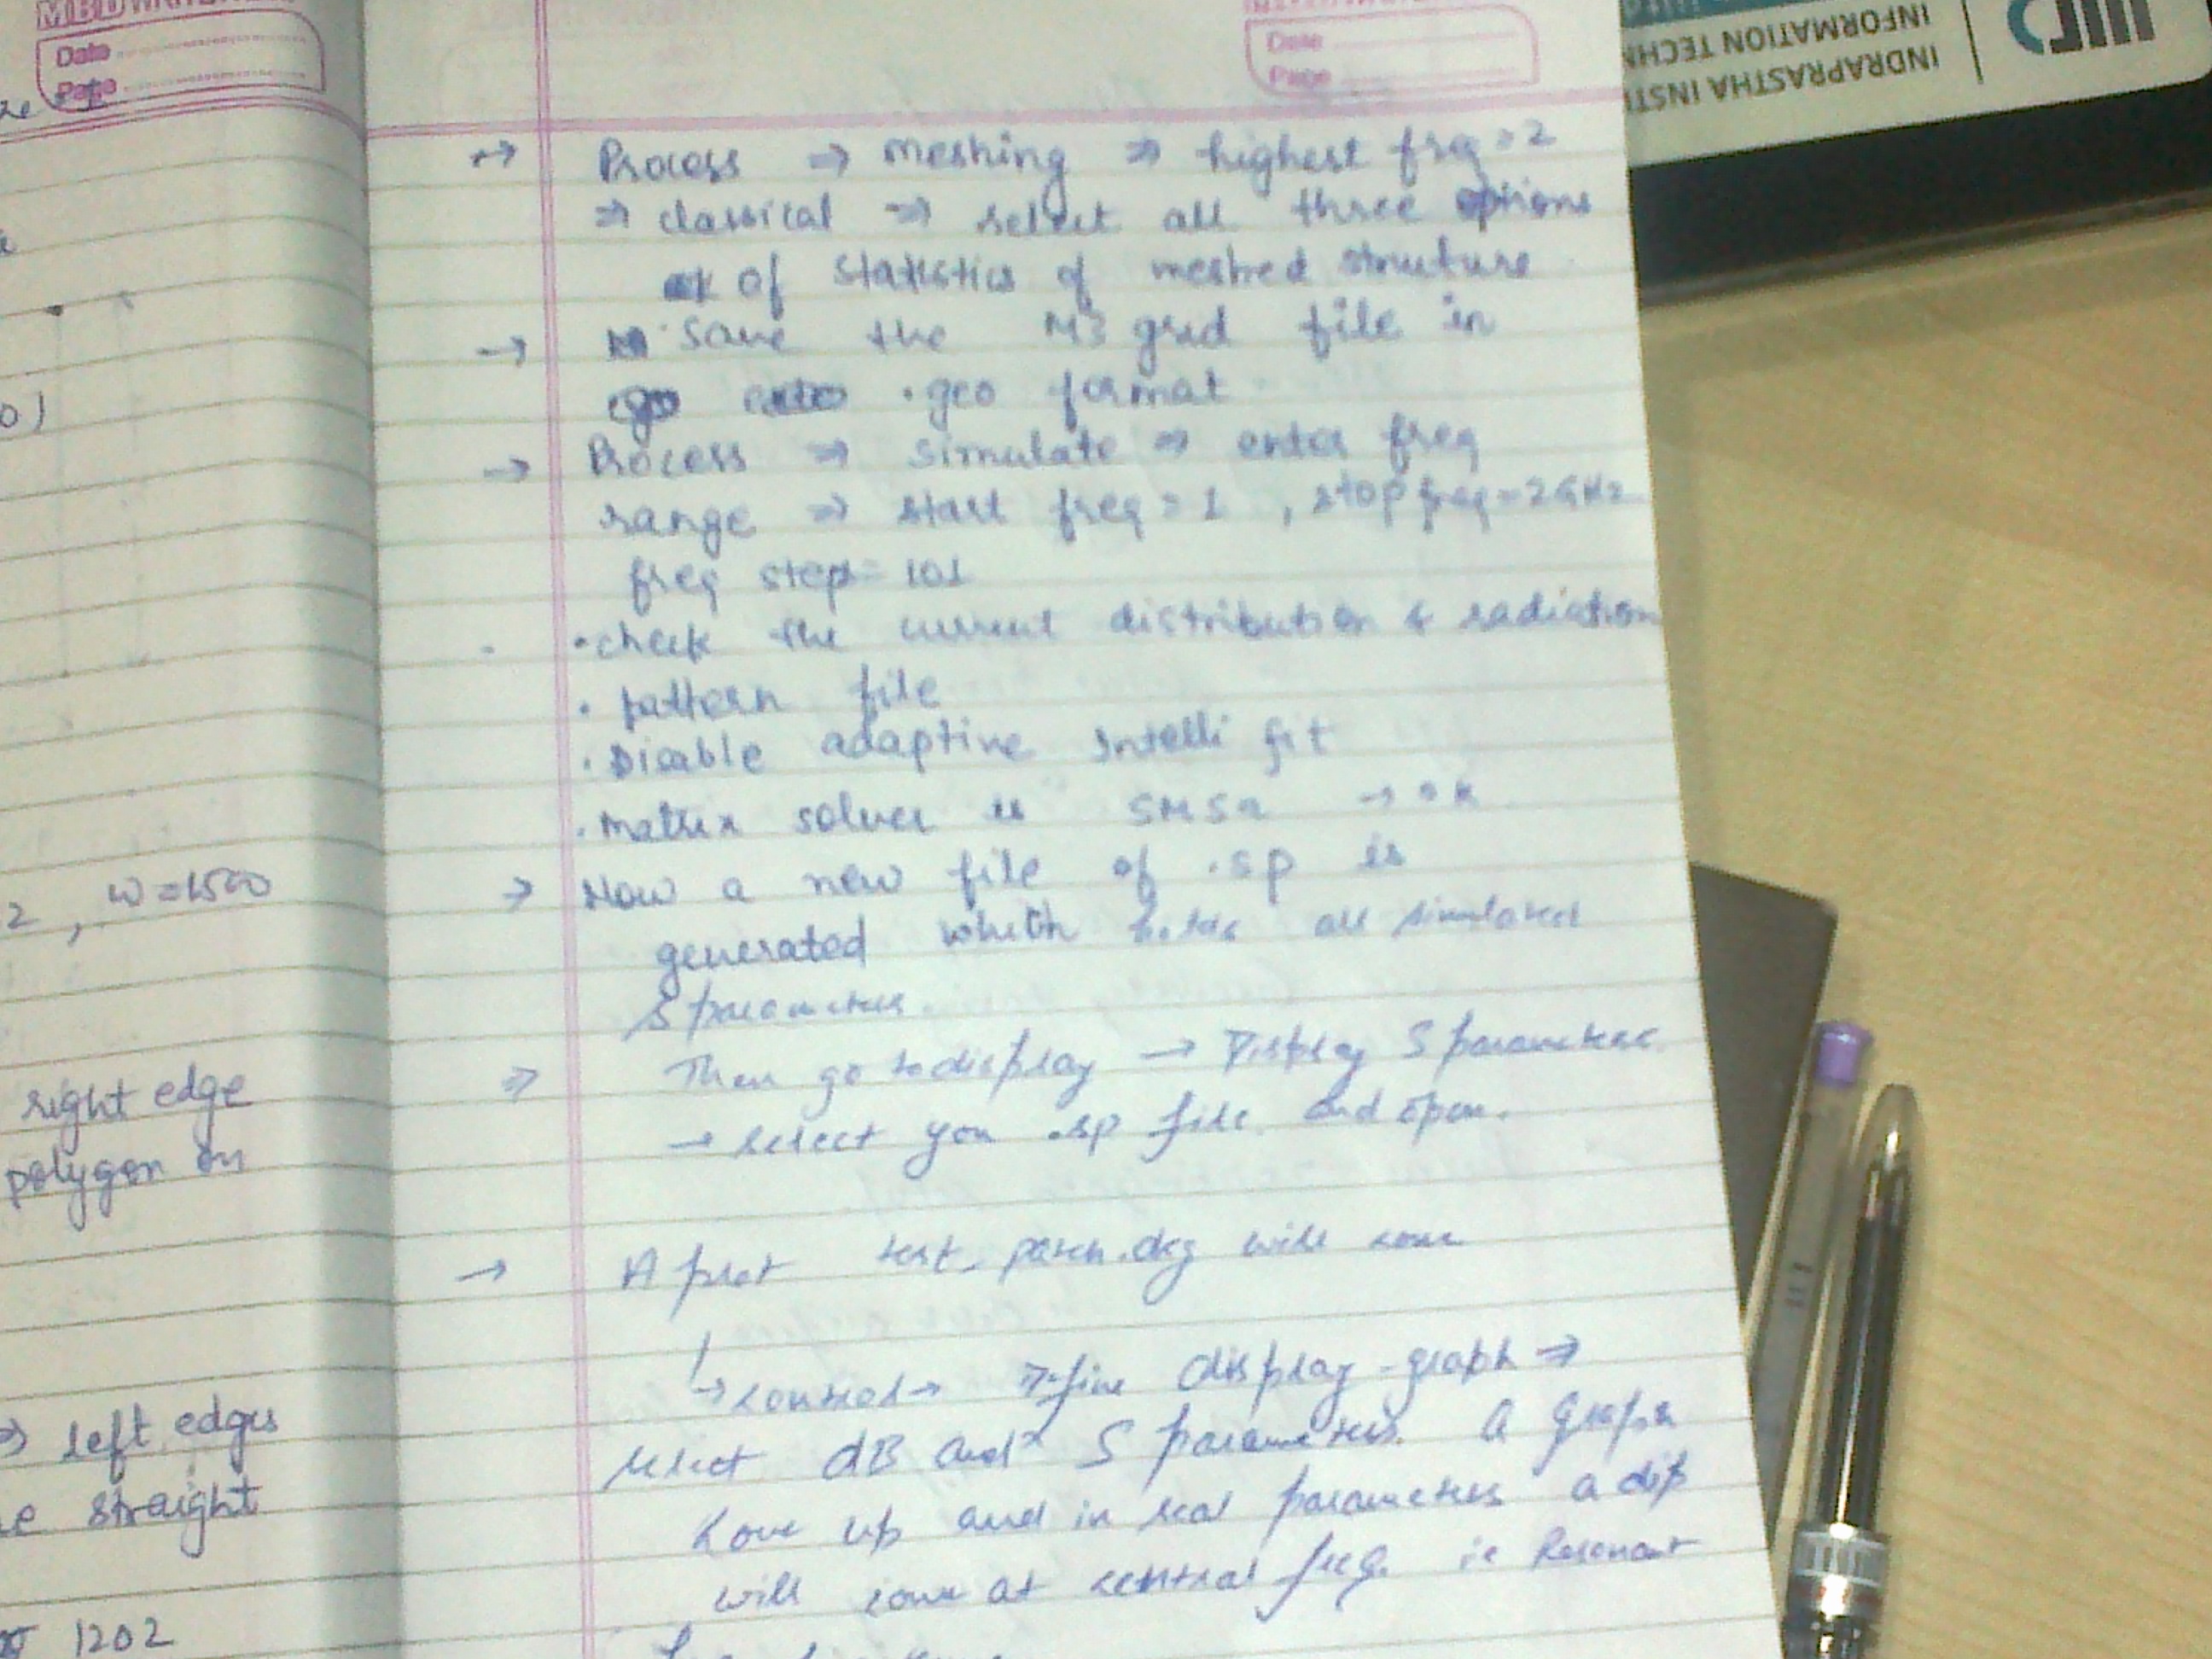 MBD
Date
Page
w=1500
2 ,
right edge
polygon on
⇒ left edges
straight
1202
Date
Page
→ Process ⇒ meshing ⇒ highest freq = 2
⇒ classical ⇒ select all three options
of statistics of meshed struture
→ Save the M3 grid file in
.geo format
→ Process ⇒ simulate ⇒ enter freq
range ⇒ start freq = 1 , stop freq = 2GHz
freq step = 101
• check the current distribution & radiation
• pattern file
• Disable adaptive Intelli fit
• Matrix solver is SMSa → ok
→ Now a new file of .sp is
generated which all simulated
S parameters.
⇒ Then go to display → Display S parameters
→ select you .sp file and open.
→ A plot test_patch. will come
↳ control → Define display-graph ⇒
select dB and S parameters. A graph
up and in parameters a dip
will come at central freq. ie Resonant
INDRAPRASTHA INSTI
INFORMATION TECHN
IIITD